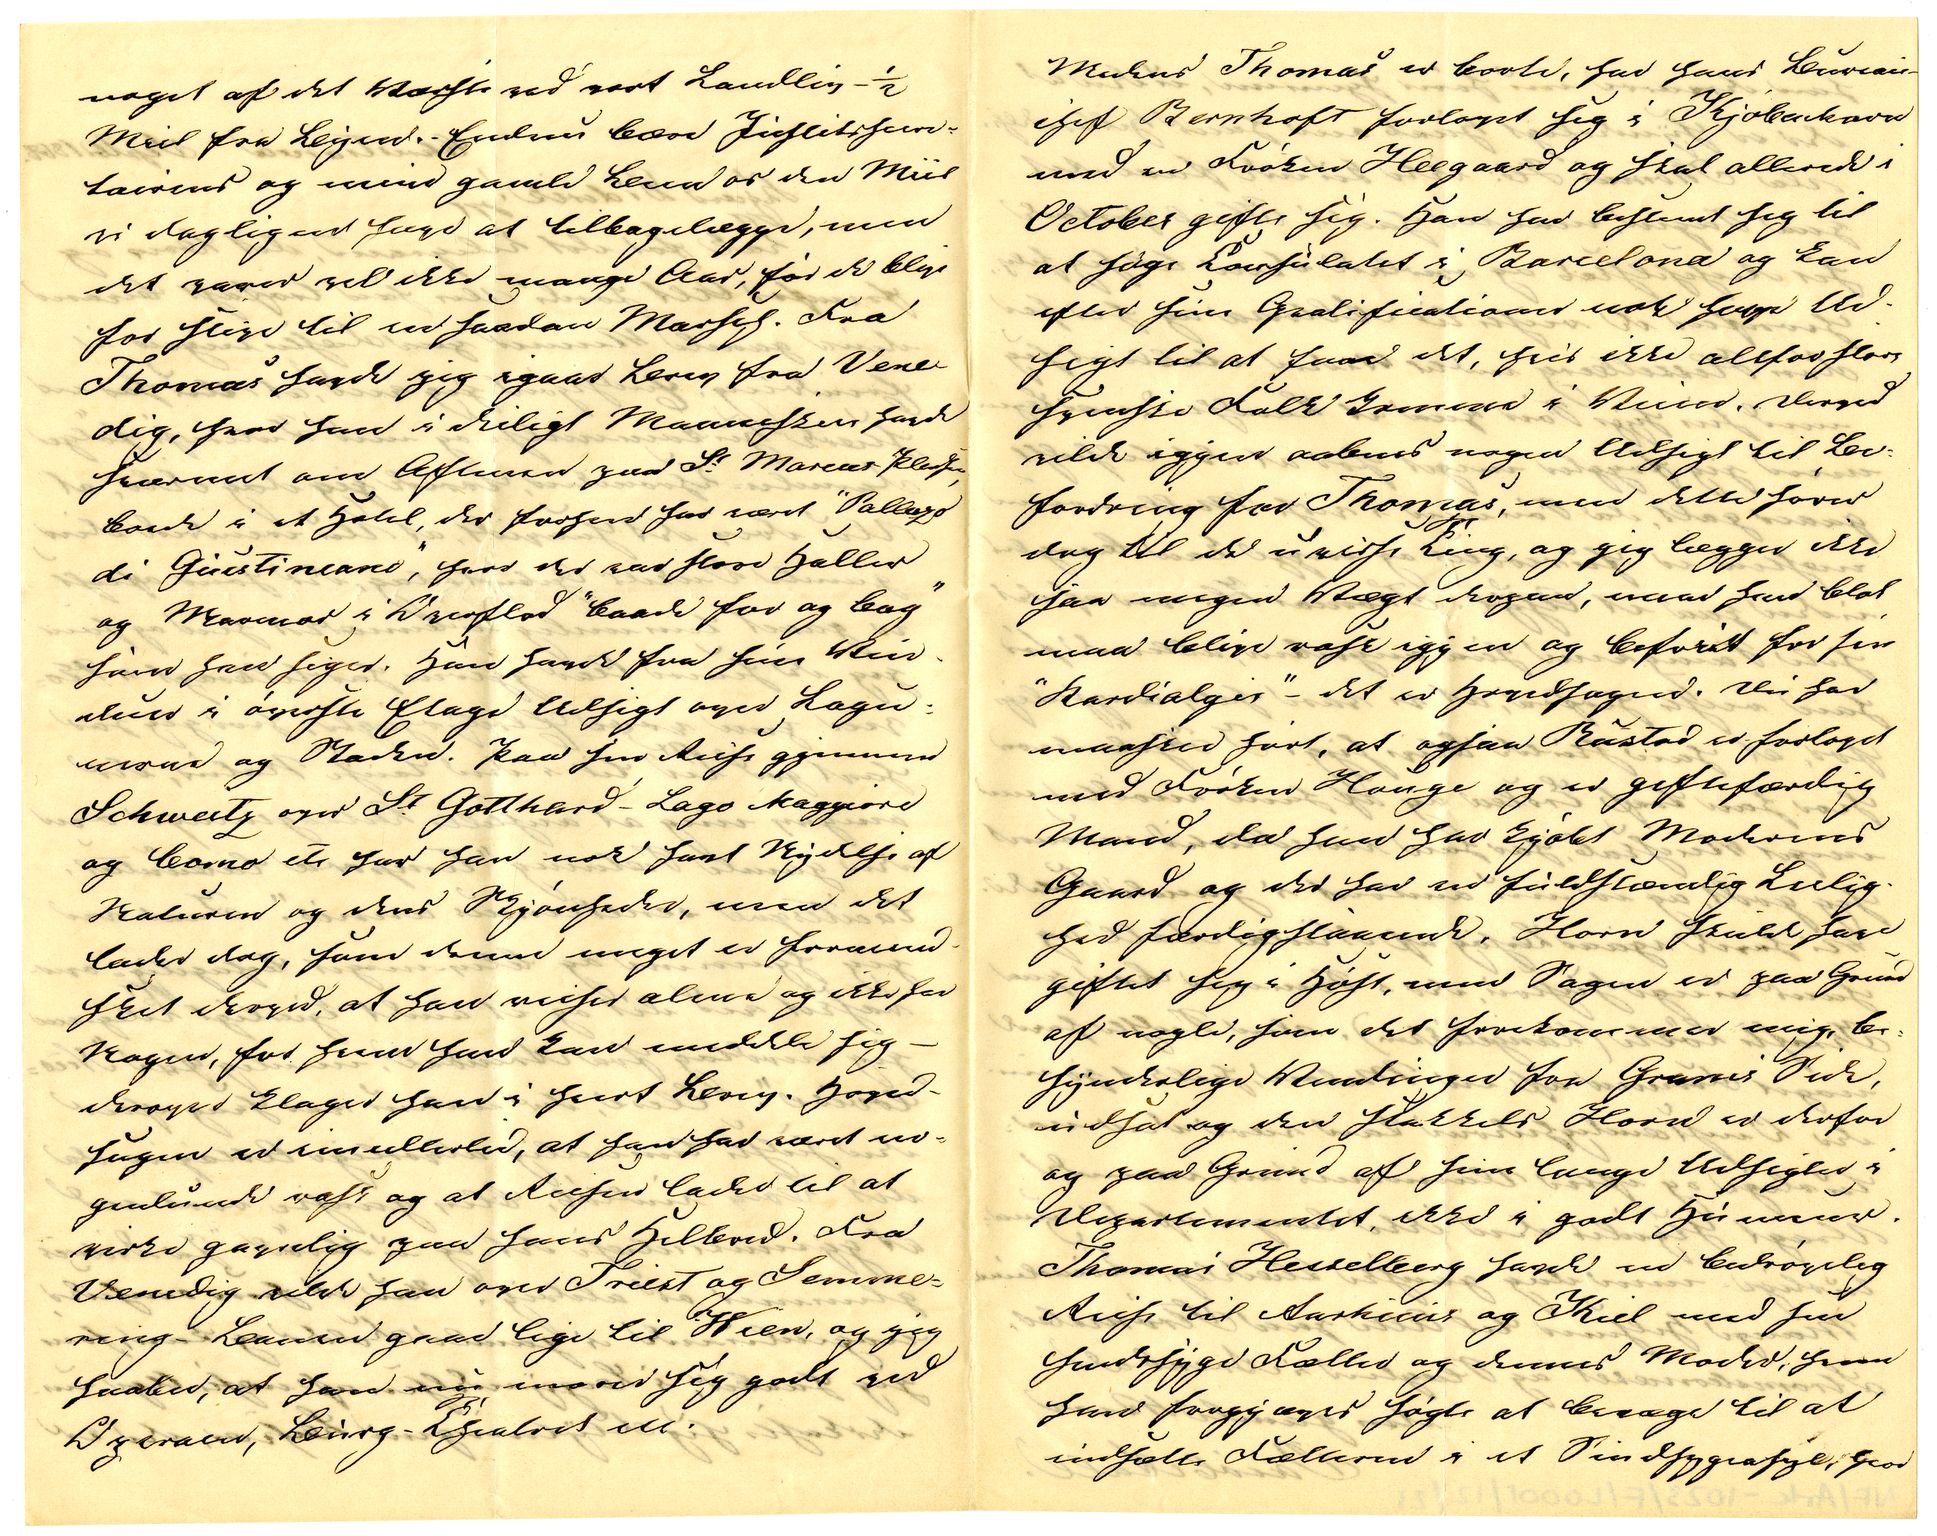 noget af det Værste ved vort Landliv – ½
Miil fra Byen. – Endnu bære Justitssecre-
tairens og mine gamle Been os den Miil
vi dagligen have at tilbagelægge, men
det varer vel ikke mange Aar, før de blive
for stive til en saadan Marsch. Fra
Thomas havde jeg igaar Brev fra Vene-
dig, hvor han i deiligt Maaneskin havde
sværmet om Aftenen paa St Marcus Pladsen,
boede i et Hotel, der forhen har været "Pallazo
di Giustineani", hvor der var store Haller
og Marmor i Overflod "baade for og bag"
som han siger. Han havde fra sine Vin-
duer i øverste Etage Udsigt over Lagu-
nerne og Staden. Paa sin Reise gjennem
Schweitz over St Gotthard – Lago Maggiore
og Como etc har han nok havt Nydelse af
Naturen og dens Skjønheder, men det
lader dog, som denne meget er formind-
sket derved, at han reiser alene og ikke har
Nogen, for hvem han kan meddele sig –
derover klager han i hvert Brev. Hoved-
sagen er imidlertid, at han har været no-
genlunde rask og at Reisen lader til at
virke gavnlig paa hans Helbred. Fra
Venedig vilde han over Triest og Semme-
ring-Banen gaae lige til Wien, og jeg
haaber, at han nu morer sig godt ved
Operaen, Burg-Theatret etc.
Medens Thomas er borte, har hans Bureau-
chef Bernhoft forlovet sig i Kjøbenhavn
med en Frøken Heegaard og skal allerede i
October gifte sig. Han har bestemt sig til
at søge Consulatet i Barcelona og kan
efter sine Qvalificationer nok have Ud-
sigt til at faae det, hvis ikke altfor store
svenske Folk komme i Veien. Derved
vilde igjen aabnes nogen Udsigt til Be-
fordring for Thomas, men dette hører
dog til de uvisse Ting, og jeg lægger ikke
saa megen Vægt derpaa, naar han blot
maa blive rask igjen og befriet for sin
"Kardialgie" – det er Hovedsagen. Du har
maaskee hørt, at ogsaa Rustad er forlovet
med Frøken Hauge og er giftefærdig
Mand, da han har kjøbt Moderens
Gaard og der har en fuldstændig Leilig-
hed færdigstaaende. Horn skulde have
giftet sig i Høst, men Sagen er paa Grund
af nogle, som det forekommer mig, be-
synderlige Vendinger fra Grams Side,
udsat og den Stakkels Horn er derfor
og paa Grund af sine lange Udsigter i
Departementet, ikke i godt Humeur.
Thomas Hesselberg havde en bedrøvelig
Reise til Aarhuus og Kiel med sin
sindssyge Fætter og dennes Moder, hvem
han forgjæves søgte at bevæge til at
indsætte Fætteren i et Sindsygeasyl, hvor